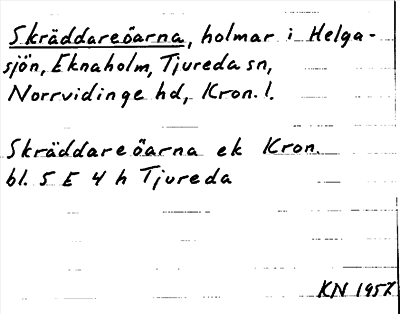 Skräddareöarna, holmar i Helga-
sjön, Eknaholm, Tjureda sn,
Norrvidinge hd, Kron. l.
Skräddareöarna ek Kron.
bl. 5 E 4 h Tjureda
KN 1957